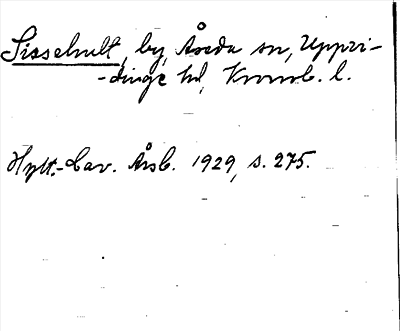 Sissehult, by, Åseda sn, Uppvi-
-dinge hd, Kronob. l.
Hylt.-Cav. Årsb. 1929, s. 275.